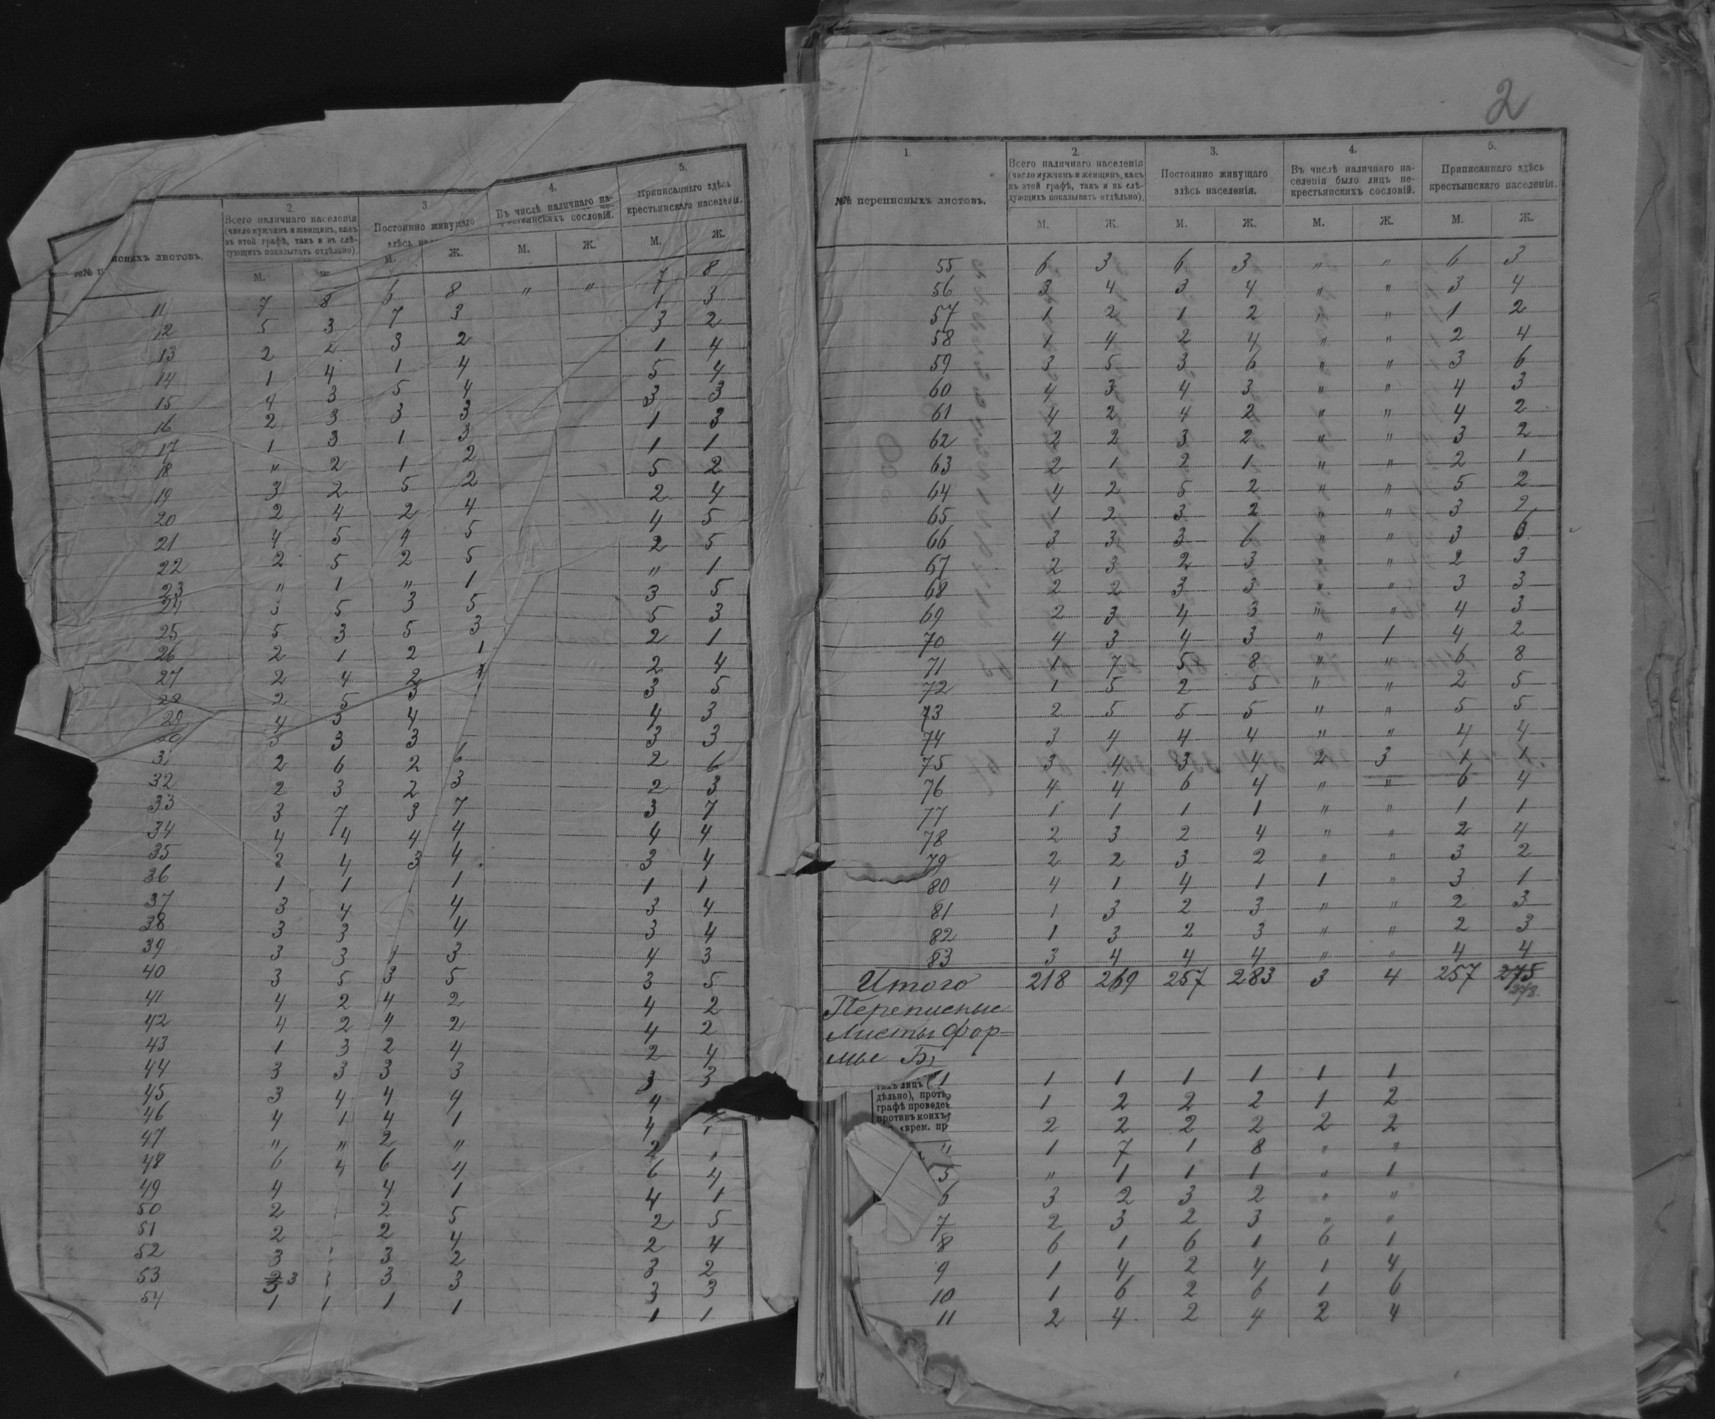 2
2.
Всего наличнаго населенія
(число мужчинъ и женщинъ, какъ
въ этой графѣ, такъ и въ слѣ-
дующихъ показывать отдѣльно)
3
Постоянно живущаго
4.
Въ числѣ наличнаго на-
крестьянскихъ сословій.
5.
Приписаннаго здѣсь
крестьянскаго населенія.
листовъ.
М. М. Ж. М. Ж. М. Ж.
11 7 8 6 8 " " 7 8
12 5 3 7 3 1 3
13 2 2 3 2 3 2
14 1 4 1 4 1 4
15 4 3 5 4 5 4
16 2 3 3 3 3 3
17 1 3 1 3 1 3
18 " 2 1 2 1 1
19 3 2 5 2 5 2
20 2 4 2 4 2 4
21 4 5 4 5 4 5
22 2 5 2 5 2 5
23 " 1 " 1 " 1
24 3 5 3 5 3 5
25 5 3 5 3 5 3
26 2 1 2 1 2 1
27 2 4 2 4 2 4
28 2 5 3 3 5
29 4 3 4 4 3
30 3 3 3 3 3
31 2 6 2 6 2 6
32 2 3 2 3 2 3
33 3 7 3 7 3 7
34 4 4 4 4 4 4
35 2 4 3 4 3 4
36 1 1 1 1 1
37 3 4 4 3 4
38 3 3 4 3 4
39 3 3 4 3 4 3
40 3 5 3 5 3 5
41 4 2 4 2 4 2
42 4 2 4 2 4 2
43 1 3 2 4 2 4
44 3 3 3 3 3 3
45 3 4 4 4 4
46 4 1 4 1 4
47 " " 2 " 2
48 6 4 6 4 6 4
49 4 4 1 4 1
50 2 2 5 2 5
51 2 2 4 2 4
52 3 3 2 3 2
53 3 3 3 3 3
54 1 1 1 1 1 1
1.
№№ переписныхъ листовъ.
2.
Всего наличнаго населенія
(число мужчинъ и женщинъ, какъ
въ этой графѣ, такъ и въ слѣ-
дующихъ показывать отдѣльно).
3.
Постоянно живущаго
здѣсь населенія.
4.
Въ числѣ наличнаго на-
селенія было лицъ не-
крестьянскихъ сословій.
5.
Приписаннаго здѣсь
крестьянскаго населенія.
М. Ж. М. Ж. М. Ж. М. Ж.
55 6 3 6 3 " " 6 3
56 3 4 3 4 " " 3 4
57 1 2 1 2 " " 1 2
58 1 4 2 4 " " 2 4
59 3 5 3 6 " " 3 6
60 4 3 4 3 " " 4 3
61 4 2 4 2 " " 4 2
62 2 2 3 2 " " 3 2
63 2 1 2 1 " " 2 1
64 4 2 5 2 " " 5 2
65 1 2 3 2 " " 3 2
66 3 3 3 6 " " 3 6
67 2 3 2 3 " " 2 3
68 2 2 3 3 " " 3 3
69 2 3 4 3 " " 4 3
70 4 3 4 3 " 1 4 2
71 1 7 5 8 " " 6 8
72 1 5 2 5 " " 2 5
73 2 5 5 5 " " 5 5
74 3 4 4 4 " " 4 4
75 3 4 3 4 2 3 1 1
76 4 4 6 4 " " 6 4
77 1 1 1 1 " " 1 1
78 2 3 2 4 " " 2 4
79 2 2 3 2 " " 3 2
80 4 1 4 1 1 " 3 1
81 1 3 2 3 " " 2 3
82 1 3 2 3 " " 2 3
83 3 4 4 4 " " 4 4
Итого 218 269 257 283 3 4 257 275
Переписные
Листы фор-
мы Б,
1 1 1 1 1 1 1
дѣльно), проти
графѣ проведе
противъ коихъ
врем. пр
1 2 2 2 1 2
2 2 2 2 2 2
" 1 7 1 8 " "
5 " 1 1 1 " 1
6 3 2 3 2 " "
7 2 3 2 3 " "
8 6 1 6 1 6 1
9 1 4 2 4 1 4
10 1 6 2 6 1 6
11 2 4 2 4 2 4